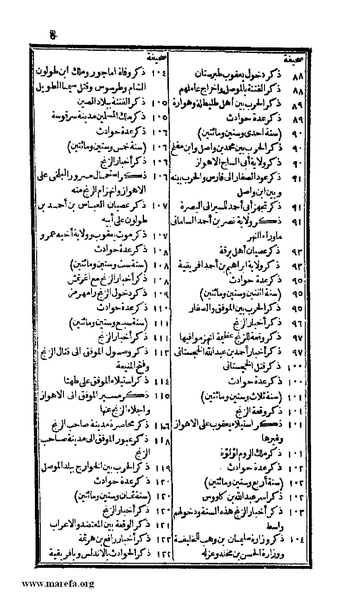 ٥
صحيفة
٨٨ ذكر دخول يعقوب طبرستان
٨٨ ذكر الفتنة بالموصل واخراج عاملهم
٨٩ ذكر الحرب بين أهل طليطلة وهوارة
٨٩ ذكر عدة حوادث
٩٠ (سنة احدى وستين ومائتين)
٩٠ ذكر الحرب بين محمد بن واصل وابن مفلح
٩٠ ذكر ولاية أبى الساج الاهواز
٩٠ ذكر عود الصفار الى فارس والحرب بينه
وبين ابن واصل
٩١ ذكر تجهز أبى أحمد للسير الى البصرة
٩١ ذكر ولاية نصر بن أحمد السامانى
ماوراء النهر
٩٣ ذكر عصيان أهل برقة
٩٣ ذكر ولاية ابراهيم بن أحمد افريقية
٩٥ ذكر عدة حوادث
٩٥ (سنة اثنتين وستين ومائتين)
٩٥ ذكر الحرب بين الموفق والصفار
٩٦ ذكر أخبار الزنج
٩٧ ذكر وقعة للزنج عظيمة انهزموا فيها
٩٧ ذكر أخبار أحمد بن عبدالله الخجستانى
١٠٠ ذكر قتل الخجستانى
١٠٠ ذكر عدة حوادث
١٠١ (سنة ثلاث وستين ومائتين)
١٠١ ذكر وقعة الزنج
١٠١ ذكر استيلاء يعقوب على الاهواز
وغيرها
١٠١ ذكر ملك الروم لؤلؤة
١٠٢ ذكر عدة حوادث
١٠٢ (سنة أربع وستين ومائتين)
١٠٢ ذكر أسر عبدالله بن كاووس
١٠٣ ذكر أخبار الزنج هذه السنة ودخولهم
واسط
١٠٤ ذكر وزارة سليمان بن وهب للخليفة
ووزارة الحسن بن مخلد وعزله
صحيفة
١٠٤ ذكر وفاة اماجور وملك ابن طولون
الشام وطرسوس وقتل سيما الطويل
١٠٥ ذكر الفتنة ببلاد الصين
١٠٥ ذكر ملك المسلمين مدينة سرقوسة
١٠٦ ذكر عدة حوادث
١٠٦ (سنة خمس وستين ومائتين)
١٠٦ ذكر أخبار الزنج
١٠٦ ذكر استعمال مسرور البلخى على
الاهواز وانهزام الزنج منه
١٠٧ ذكر عصيان العباس بن أحمد بن
طولون على أبيه
١٠٧ ذكر موت يعقوب وولاية أخيه عمرو
١٠٨ ذكر عدة حوادث
١٠٨ (سنة ست وستين ومائتين)
١٠٨ ذكر أخبار الزنج مع اغرتمش
١٠٩ ذكر دخول الزنج رامهرمز
١١٠ ذكر عدة حوادث
١١١ (سنة سبع وستين ومائتين)
١١١ ذكر أخبار الزنج
١١٣ ذكر وصول الموفق الى قتال الزنج
وفتح المنيعة
١١٤ ذكر استيلاء الموفق على طهثا
١١٥ ذكر مسير الموفق الى الاهواز
واجلاء الزنج عنها
١١٦ ذكر محاصرة مدينة صاحب الزنج
١١٨ ذكر عبور الموفق الى مدينة صاحب
الزنج
١١٩ ذكر الحرب بين الخوارج ببلد الموصل
١٢٠ ذكر عدة حوادث
١٢٠ (سنة ثمان وستين ومائتين)
١٢٠ ذكر أخبار الزنج
١٢١ ذكر الوقعة بين المعتضد والاعراب
١٢٢ ذكر أخبار رافع بن هرثمة
١٢٢ ذكر الحوادث بالاندلس وبافريقية
www.marefa.org